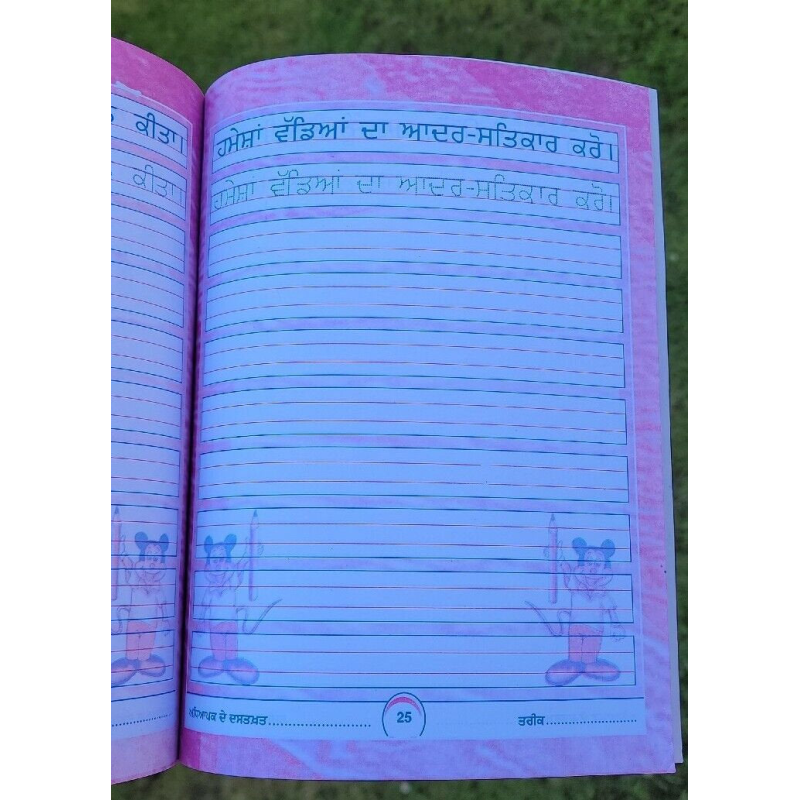 ਕੀਤਾ।
ਕੀਤਾ।
ਹਮੇਸ਼ਾਂ ਵੱਡਿਆਂ ਦਾ ਆਦਰ-ਸਤਿਕਾਰ ਕਰੋ।
ਹਮੇਸ਼ਾਂ ਵੱਡਿਆਂ ਦਾ ਆਦਰ-ਸਤਿਕਾਰ ਕਰੋ।
ਅਧਿਆਪਕ ਦੇ ਦਸਤਖ਼ਤ.......................
25
ਤਰੀਕ.......................